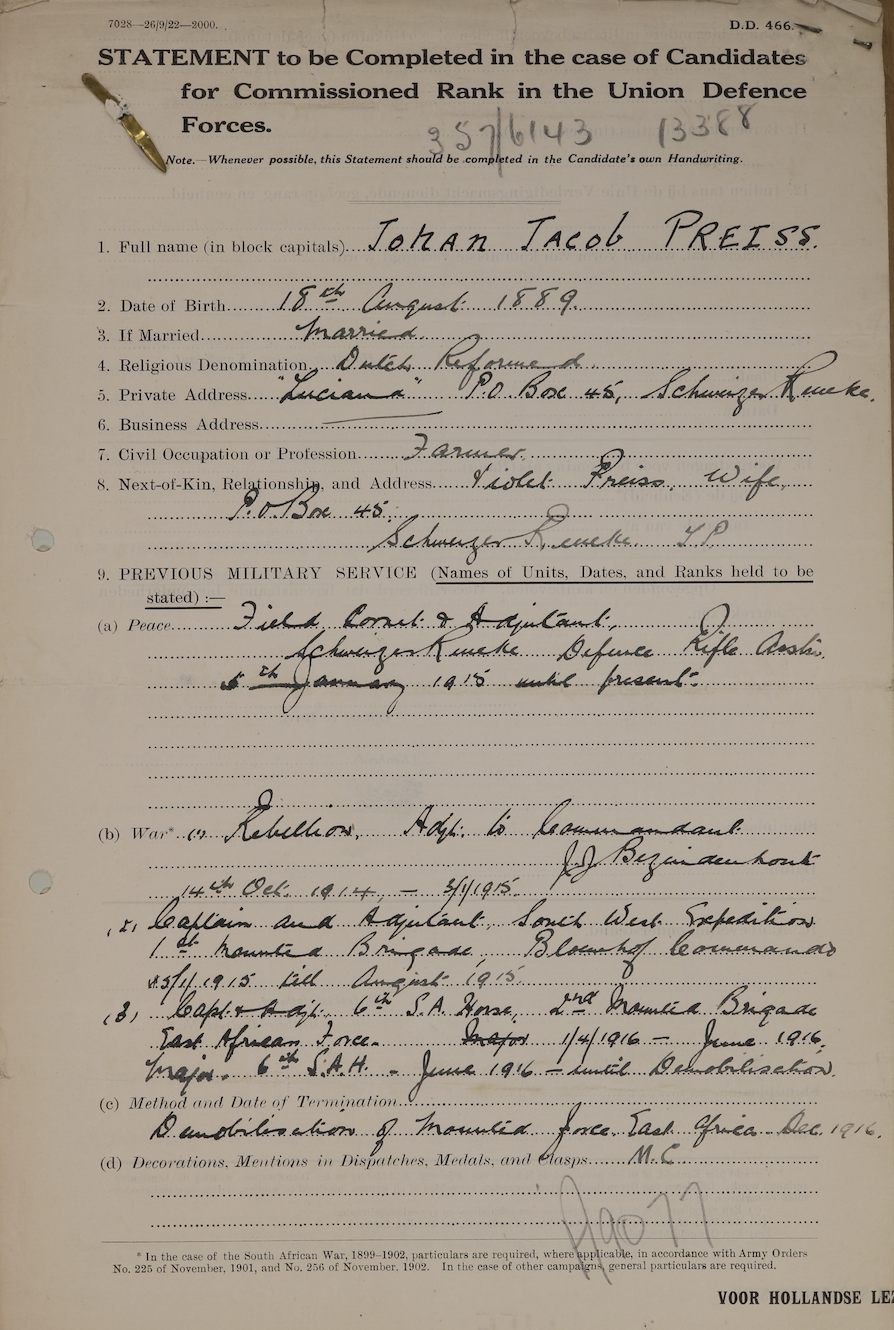 7028—26/9/22—2000.
D.D. 466.
STATEMENT to be Completed in the case of Candidates
for Commissioned Rank in the Union Defence
Forces.
357/6143 13388
Note.—Whenever possible, this Statement should be completed in the Candidate's own Handwriting.
1. Full name (in block capitals) JOHAN JACOB PREISS.
2. Date of Birth 18th August 1889.
3. If Married Married
4. Religious Denomination Dutch Reformed
5. Private Address "Luciana" P.O Box 45, Schweizer Reneke.
6. Business Address
7. Civil Occupation or Profession Farmer.
8. Next-of-Kin, Relationship, and Address Violet Preiss, Wife,
P.O. Box 45,
Schweizer Reneke. T.P
9. PREVIOUS MILITARY SERVICE (Names of Units, Dates, and Ranks held to be
stated) :—
(a) Peace Field Cornet & Adjutant,
Schweizer Reneke Defence Rifle Asstn.
5th January 1915 until present.
(b) War* (1) Rebellion, Adjt. to Commandant
J.J Bezuidenhout
14th Oct. 1914 — 3/1/1915.
(2) Captain and Adjutant, South West Expedition
1st Mounted Brigade, Bloemhof Commando
5/1/1915 till August 1915.
(3) Capt. & Adjt. 6th S.A. Horse, 2nd Mounted Brigade
East African Force. Major 1/4/1916 — June 1916,
Major. 6th S.A.H. - June 1916 — until Demobilisation.
(c) Method and Date of Termination
Demobilisation of Mounted force. East Africa Dec. 1916.
(d) Decorations, Mentions in Dispatches, Medals, and Clasps M.C
* In the case of the South African War, 1899-1902, particulars are required, where applicable, in accordance with Army Orders
No. 225 of November, 1901, and No. 256 of November, 1902. In the case of other campaigns, general particulars are required.
VOOR HOLLANDSE LEZ